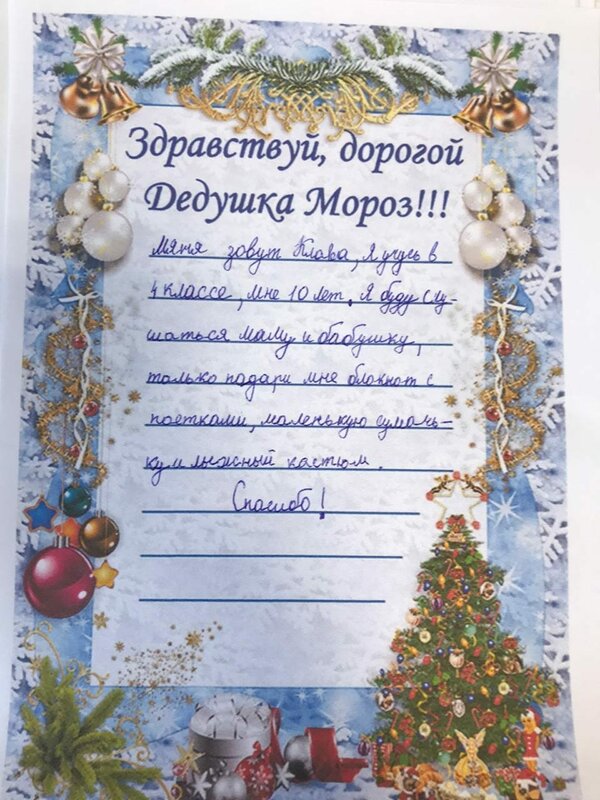 Здравствуй, дорогой
Дедушка Мороз!!!
Меня зовут Клава, Я учусь в
4 классе, мне 10 лет. Я буду слу-
шаться маму и бабушку,
только подари мне блокнот с
паетками, маленькую сумачь-
ку и лыжный кастюм.
Спасибо!